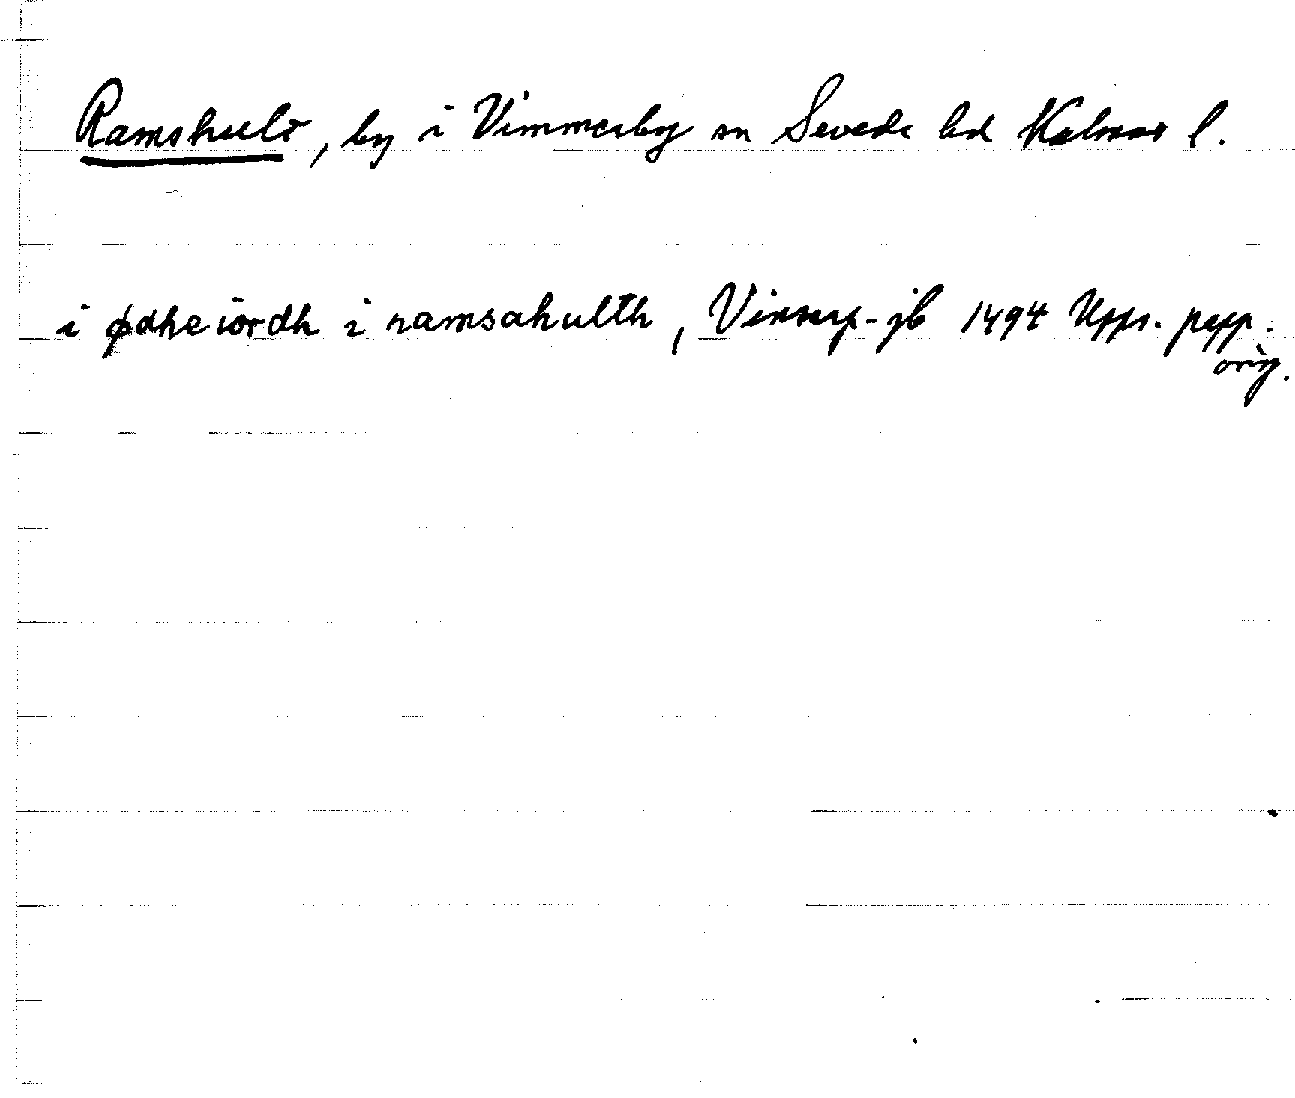 Ramshult, by i Vimmerby sn Sevede hd Kalmar l.
i ødheiordh i ramsahulth, Vinnerp-jb 1494 Upps. papp.
orig.